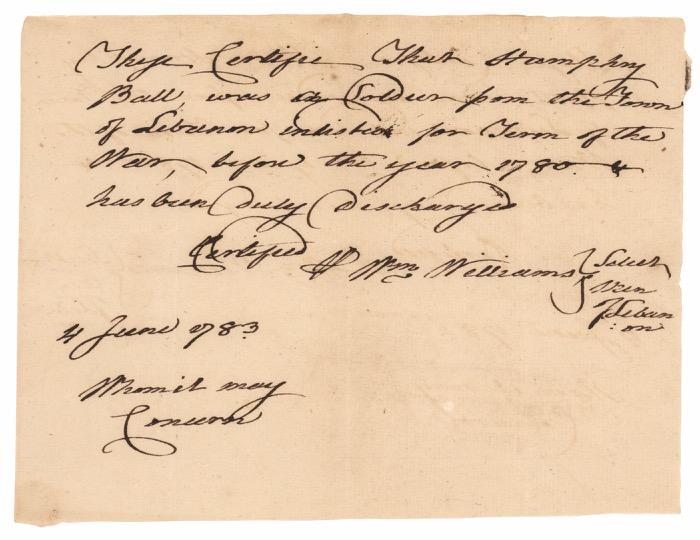 These Certifie That Humphry
Ball, was a Soldier from the Town
of Lebanon inlisted for Term of the
War, before the year 1780 &
has been Duly discharged
Certified
⅌ Wm Williams } Select
Men
of Leban
:on
4 June 1783
Whom it may
Concern